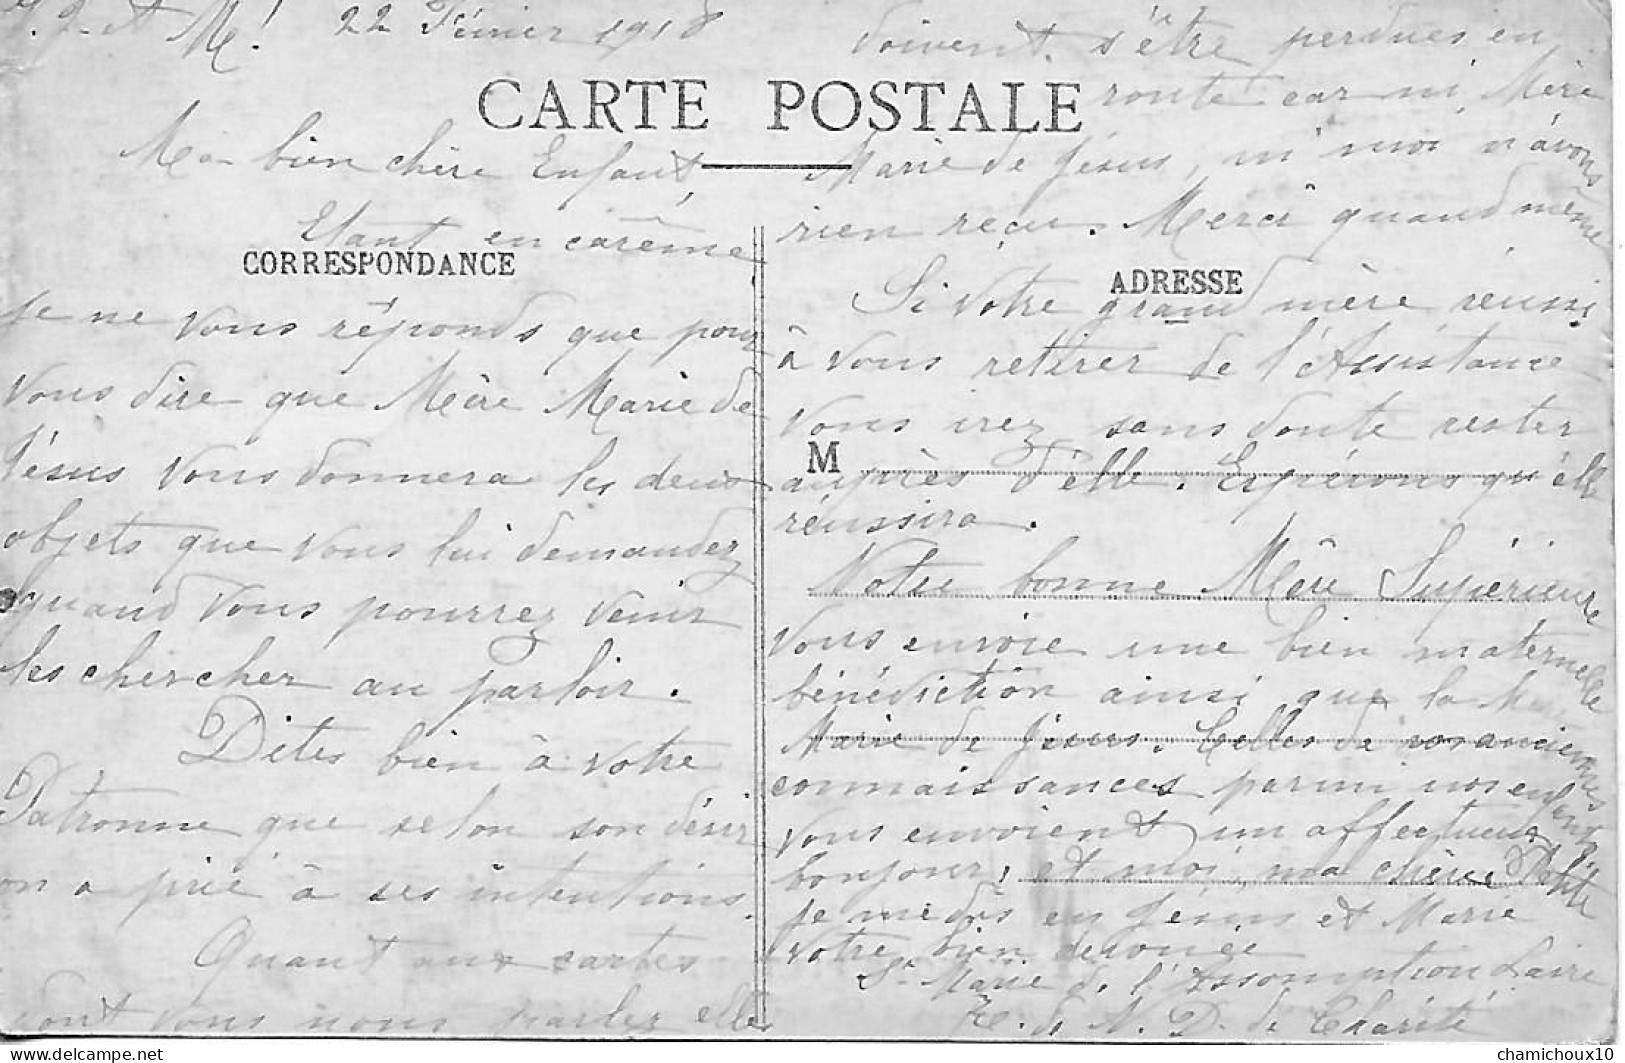 J. J. et M! 22 Février 1918
CARTE POSTALE
Ma bien chère Enfant,
Etant en carême
CORRESPONDANCE
je ne vous réponds que pour
vous dire que Mère Marie de
Jésus vous donnera les deux
objets que vous lui demandez
quand vous pourrez venir
les chercher au parloir.
Dites bien à votre
Patronne que selon son désir
on a prié à ses intentions.
Quant aux cartes
dont vous nous parlez elles
doivent s'être perdues en
route car ni Mère
Marie de Jésus, ni moi n'avons
rien reçu. Merci quand même
ADRESSE
Si votre grand mère réussi
à vous retirer de l'Assistance
vous irez sans doute rester
M
auprès d'elle. Espérons qu'elle
réussira.
Notre bonne Mère Supérieure
vous envoie une bien maternelle
bénédiction ainsi que la
Marie de Jésus. Celles de vos anciennes
connaissances parmi nos enfants
vous envoient un affectueux
bonjour, et moi, ma chère Petite
je me dis en Jésus et Marie
votre bien dévouée
Sr Marie de l'Assomption Laire
R. de N. D. de Charité
www.delcampe.net
chamichoux10